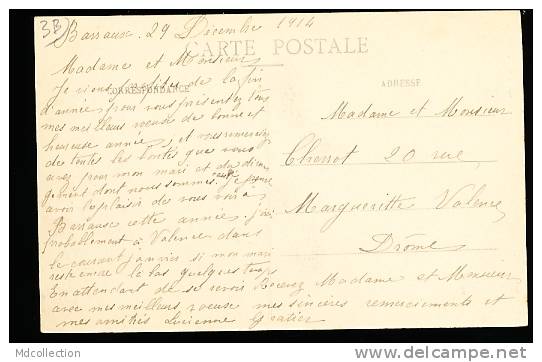 3B
Barraux. 29 Décembre 1914
CARTE POSTALE
Madame et Monsieur
CORRESPONDANCE
ADRESSE
Je viens profiter de la fin
d'année pour vous présenter tous
mes meilleurs voeux de bonne et
heureuse année, et vous remercier
de toutes les bontés que vous
avez pour mon mari et du
gement dont nous sommes Je pense
avoir le plaisir de vous voir à
Barraux cette année, j'irai
probablement à Valence dans
le courant janvier si mon mari
reste encore là bas quelques temps
En attendant de se revoir Recevez Madame et Monsieur
avec mes meilleurs voeux mes sincères remerciements et
mes amitiés Lucienne Gratier
Madame et Monsieur
Cherrot 20 rue
Margueritte Valence
Drôme
Mdcollection
delcampe.net